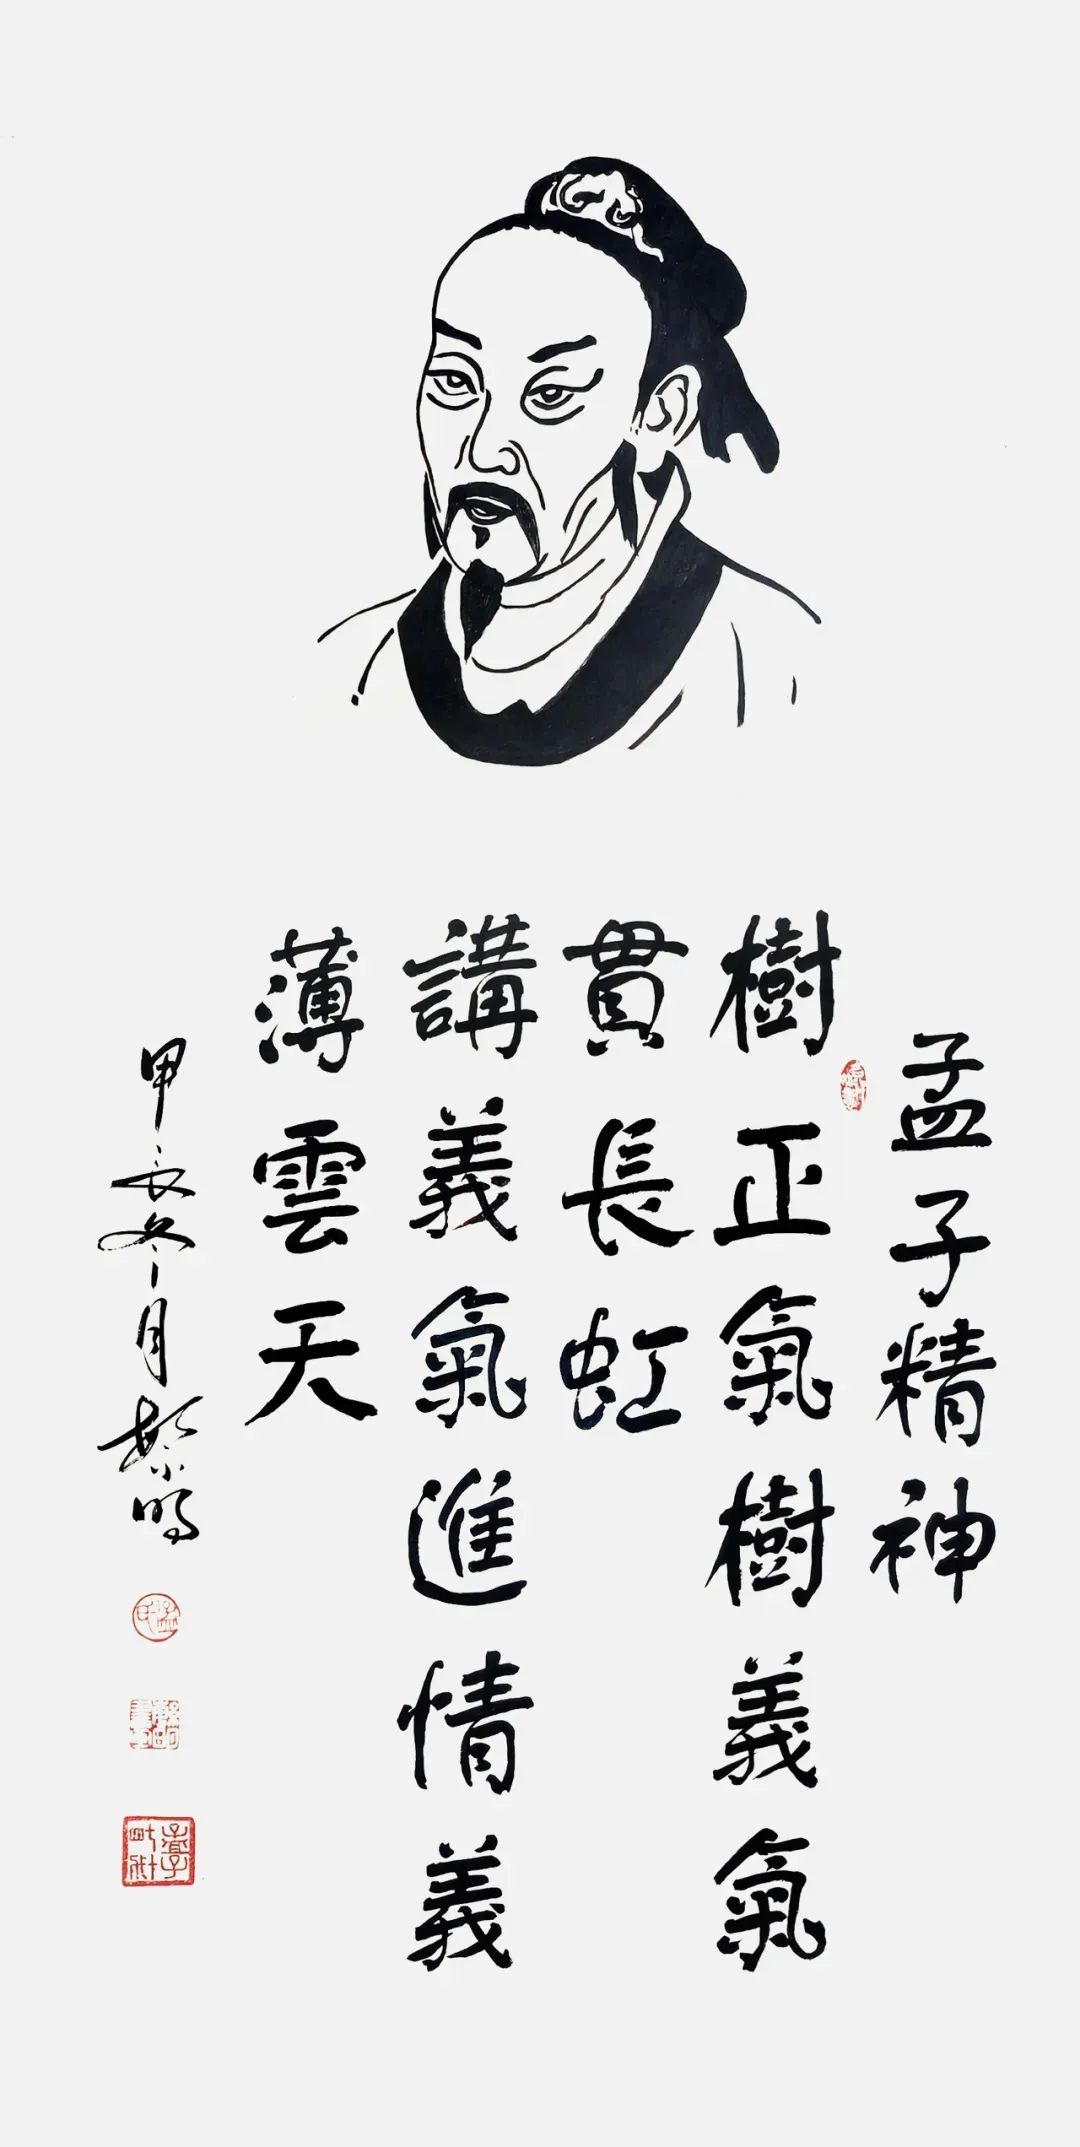 孟子精神
樹正氣樹義氣
貫長虹
講義氣進情義
薄雲天
甲辰冬月繁鳴
孟氏